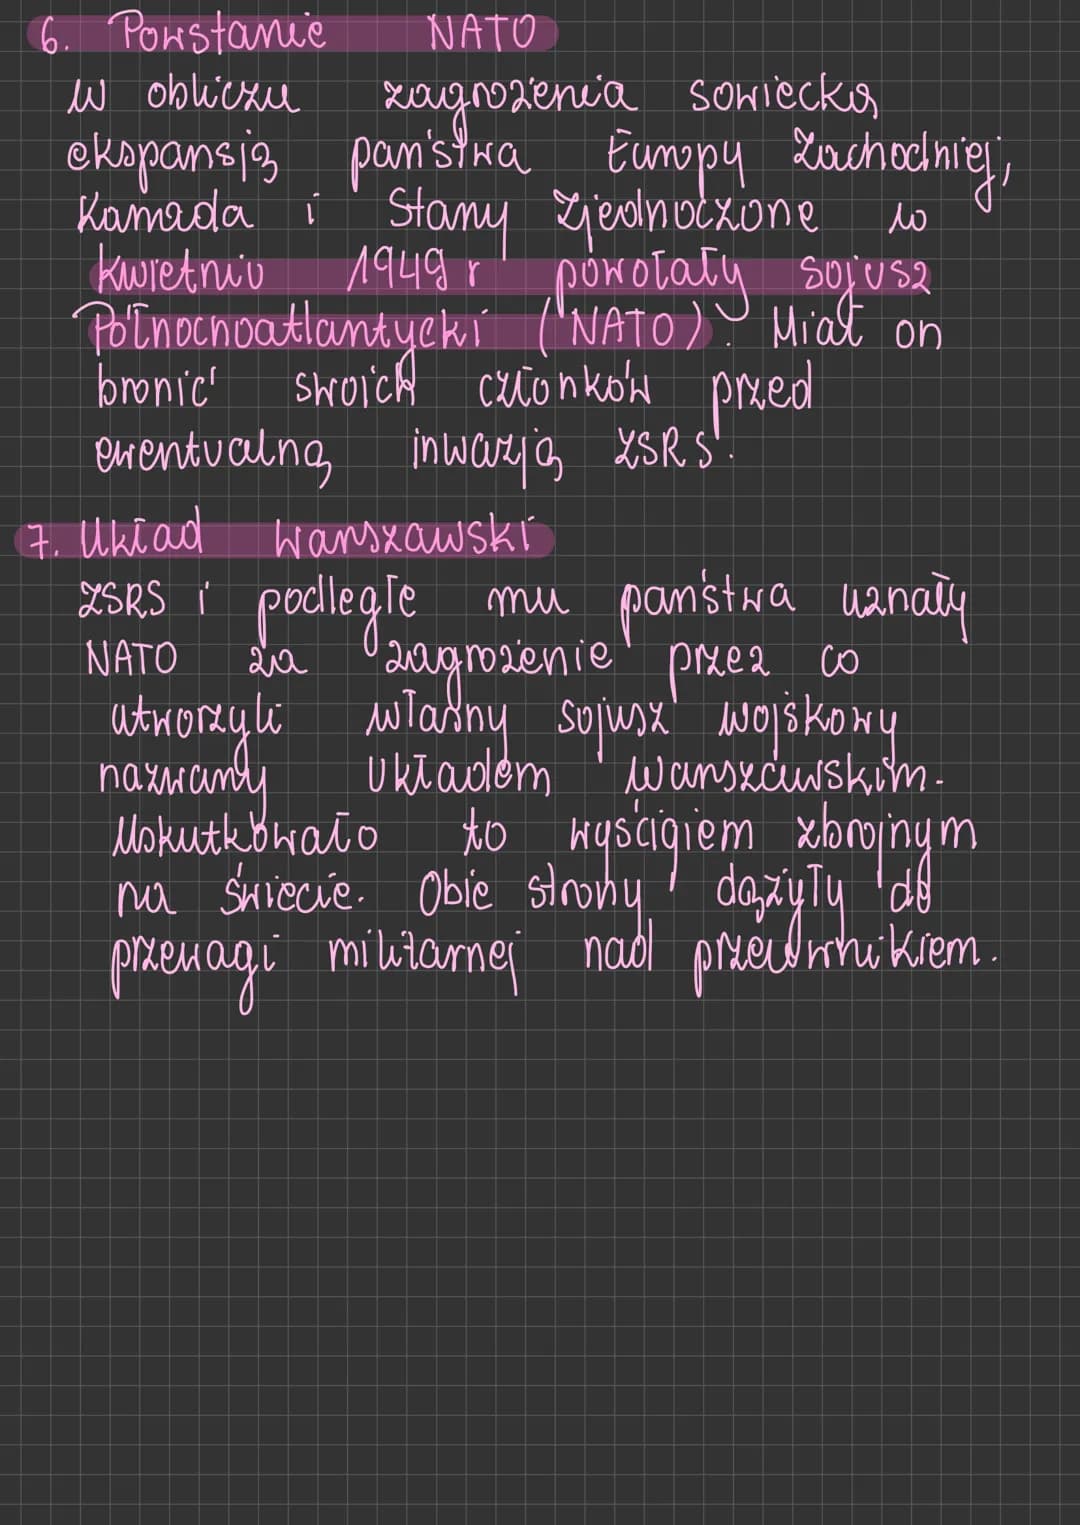 6. Powstanie NATO
W obliczu zagrożenia sowiecką
ekspansją państwa Europy Zachodniej,
Kanada i Stany Zjednoczone w
kwietniu 1949 r powołały Sojusz
Północnoatlantycki (NATO). Miał on
bronić swoich członków przed
ewentualną inwazją ZSRS.
7. Układ Warszawski
ZSRS i podległe mu państwa uznały
NATO za zagrożenie przez co
utworzyli własny sojusz wojskowy
nazwany Układem Warszawskim.
Uskutkowało to wyścigiem zbrojnym
na świecie. Obie strony dążyły do
przewagi militarnej nad przeciwnikiem.